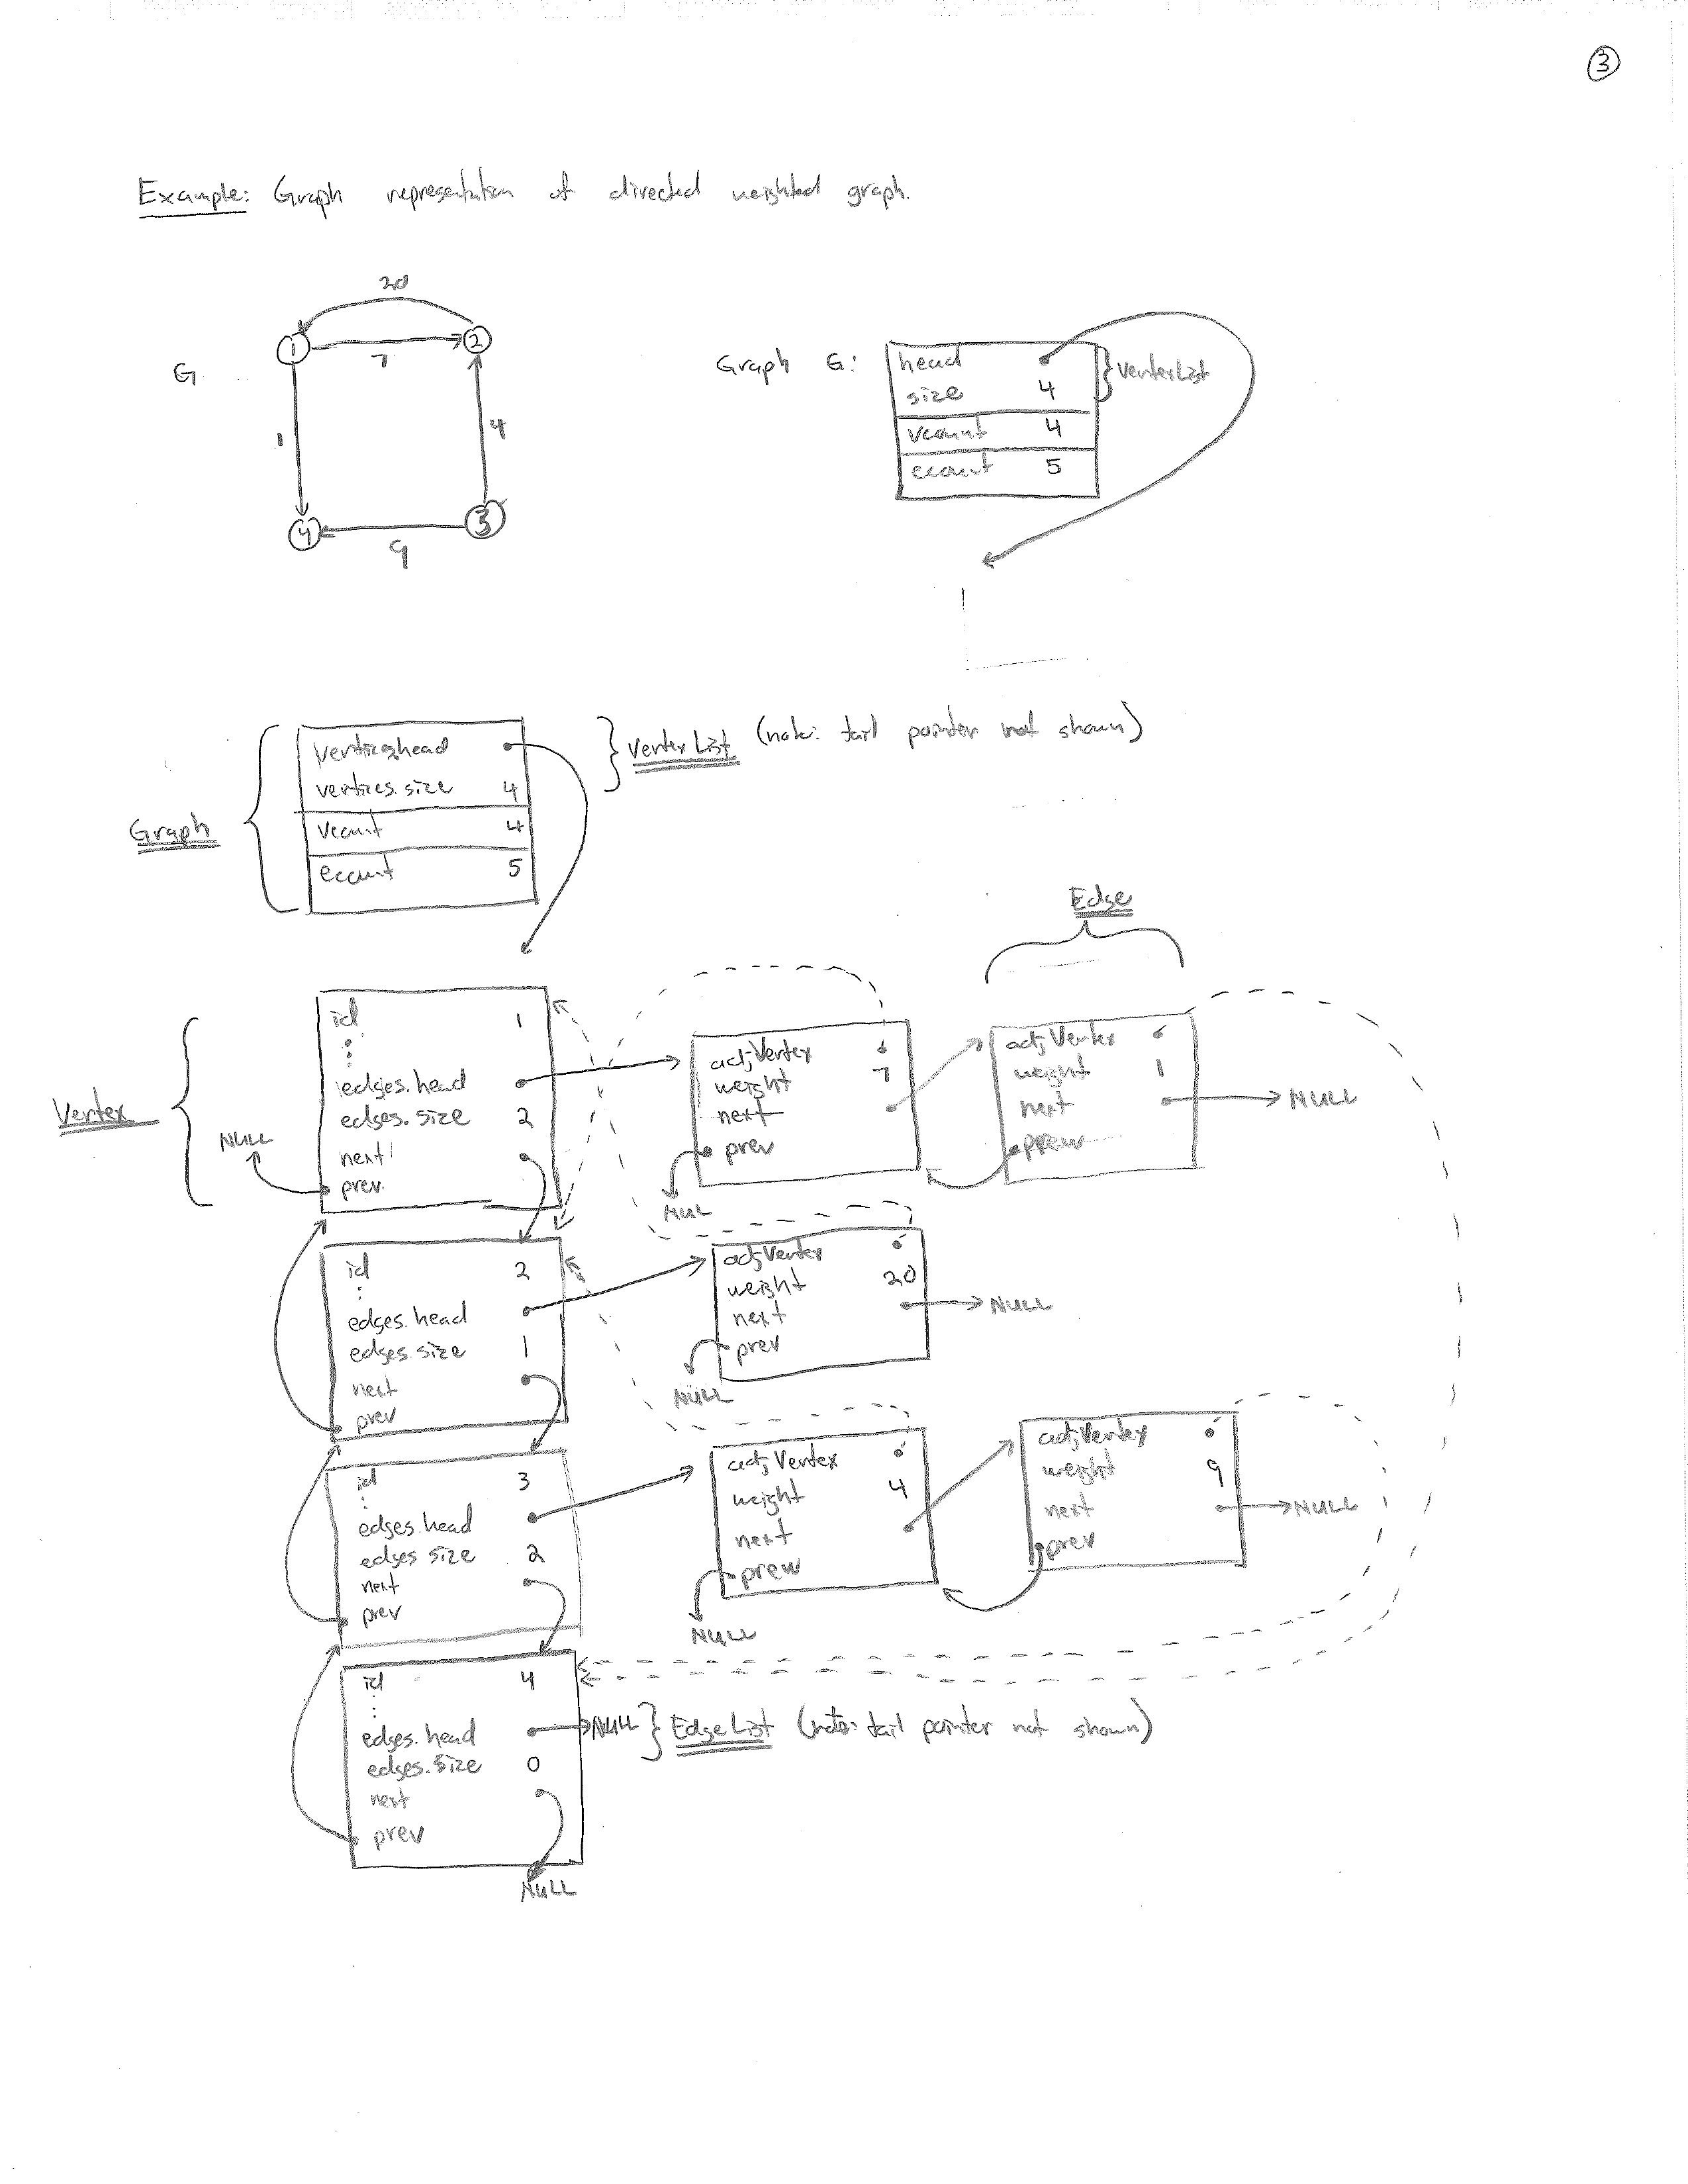 3
Example: Graph representation of directed weighted graph.
20
1
2
7
G
1
4
4
3
9
Graph G:
head
size 4
vcount 4
ecount 5
VertexList
vertices.head
vertices.size 4
vcount 4
ecount 5
Graph
VertexList (note: tail pointer not shown)
Edge
Vertex
id 1
edges.head
edges.size 2
next
prev
NULL
adjVertex
weight 7
next
prev
NUL
adjVertex
weight 1
next
prev
NULL
id 2
edges.head
edges.size 1
next
prev
adjVertex
weight 20
next
prev
NULL
NULL
id 3
edges.head
edges size 2
next
prev
adjVertex
weight 4
next
prev
NULL
adjVertex
weight 9
next
prev
NULL
id 4
edges.head
edges.size 0
next
prev
NULL
NULL
EdgeList (note: tail pointer not shown)